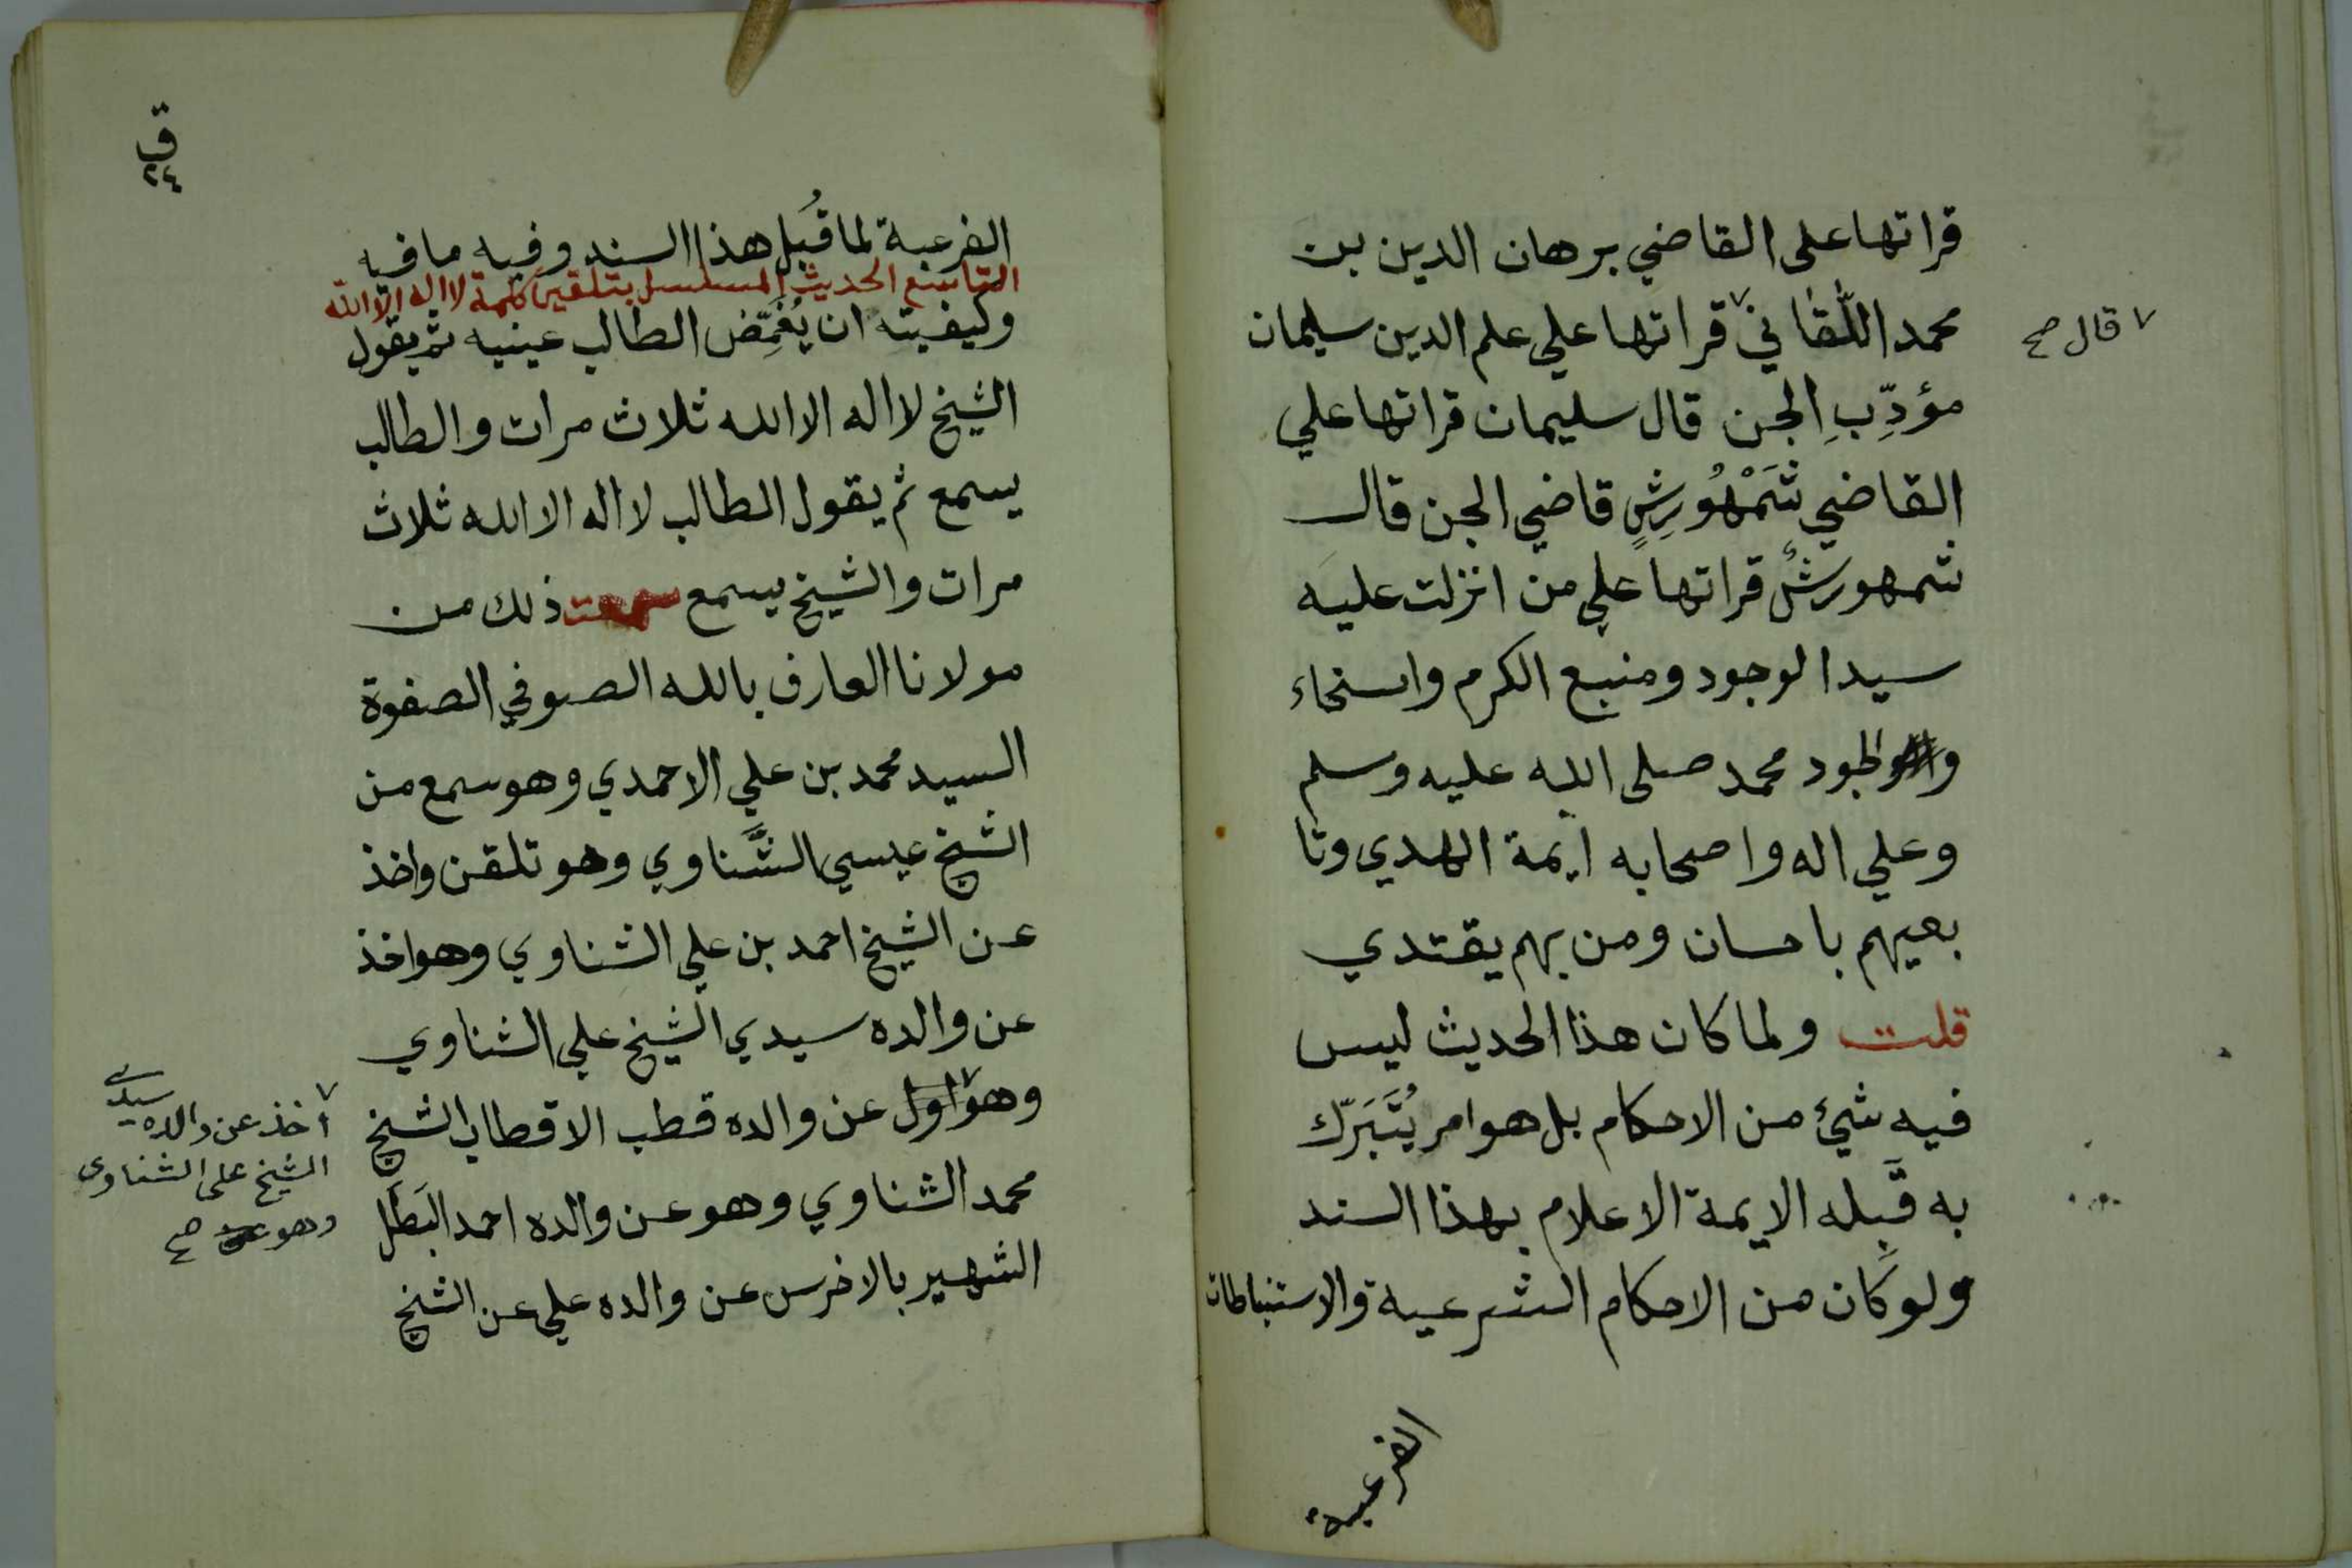 قراتها على القاضي برهان الدين بن
محمد اللَّقاني قراتها علي علم الدين سليمان
٧ قال صح
مؤدِّبِ الجن قال سليمان قراتها علي
القاضي شَمْهُورِشٍ قاضي الجن قال
شمهورشُ قراتها علي من انزلت عليه
سيد الوجود ومنبع الكرم والسخاء
والجود محمد صلى الله عليه وسلم
وعلي اله واصحابه ايمة الهدي وتا
بعيهم باحسان ومن بهم يقتدي
قلت ولما كان هذا الحديث ليس
فيه شئ من الاحكام بل هو امر يُتَبَرّك
به قَبِله الايمة الاعلام بهذا السند
ولو كان من الاحكام الشرعية والاستنباطات
الفرعية
ق
٢٤
الفرعية لما قُبِل هذا السند وفيه ما فيه
التاسع الحديث المسلسل بتلقين كلمة لا اله الا الله
وكيفيته ان يُغَمِّض الطالب عينيه ثم يقول
الشيخ لا اله الا الله ثلاث مرات والطالب
يسمع ثم يقول الطالب لا اله الا الله ثلاث
مرات والشيخ يسمع سمعت ذلك من
مولانا العارف بالله الصوفي الصفوة
السيد محمد بن علي الاحمدي وهو سمع من
الشيخ عيسي الشَّناوي وهو تلقن واخذ
عن الشيخ احمد بن علي الشناوي وهو اخذ
عن والده سيدي الشيخ علي الشناوي
وهو اول عن والده قطب الاقطاب الشيخ
٧ أخذ عن والده سيدي
الشيخ على الشناوى
وهو عن صح
محمد الشناوي وهو عن والده احمد البَطَل
الشهير بالاخرس عن والده علي عن الشيخ